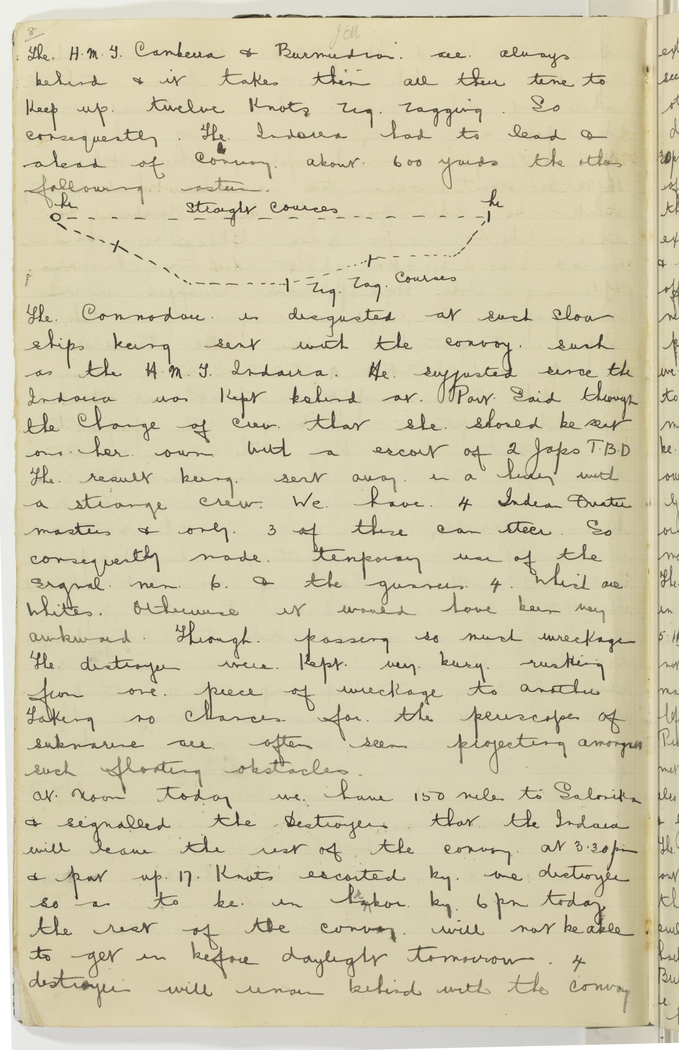 8
The. H.M.T. Canberra & Burmudian. are. always
behind & it takes them all their time to
Keep up. twelve Knots Zig. Zagging. So
consequently. The. Indarra had to lead
ahead of convoy. about. 600 yards the others
following astern.
Straight Courses
Zig. Zag. Courses
The. Commodore. is disgusted at such slow
ships being sent with the convoy. such
as the H.M.T. Indarra. He. suggested since the
Indarra was Kept behind at. Port Said through
the Change of Crew. that she. should be sent
on her. own with a escort of 2 Japs T.B.D
The. result being. sent away. in a hurry with
a strange crew. We. have. 4 Indian Quarter
masters & only. 3 of these can steer. So
consequently made. temporary use of the
signal. men 6. & the gunners. 4. Which are
Whites. Otherwise it would have been very
awkward. Through. passing so much wreckage
The destroyers were. Kept. very. busy. rushing
from one. piece of wreckage to another
Taking no chances for. the periscopes of
submarine are. often seen projecting amongst
such floating obstacles.
At. Noon today we. have 150 miles to Salonika
& signalled the Destroyers that the Indarra
will leave the rest of the convoy. at 3.30 pm
& put up. 17. Knots escorted by. one destroyer
so as to be. in harbor by. 6 pm today
the rest of the convoy. will not be able
to get in before daylight tomorrow. 4
destroyers will remain behind with the convoy